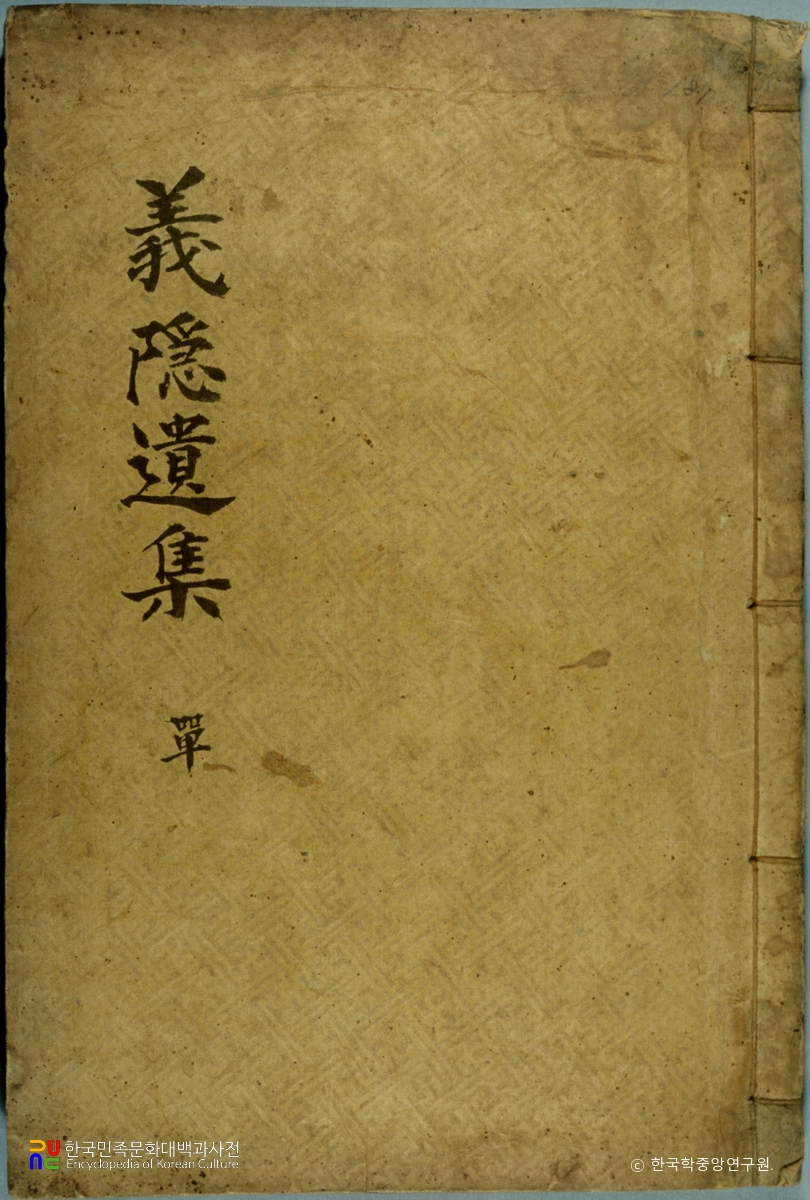 義隱遺集
單
한국민족문화대백과사전
Encyclopedia of Korean Culture
© 한국학중앙연구원.